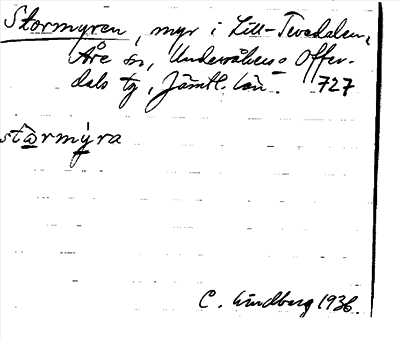 Stormyren, myr i Lill-Tevedalen,
Åre sn, Undersåkers o Offer-
dals tg, Jämtl. län. 727
stårmýra
C. Lindberg 1936.